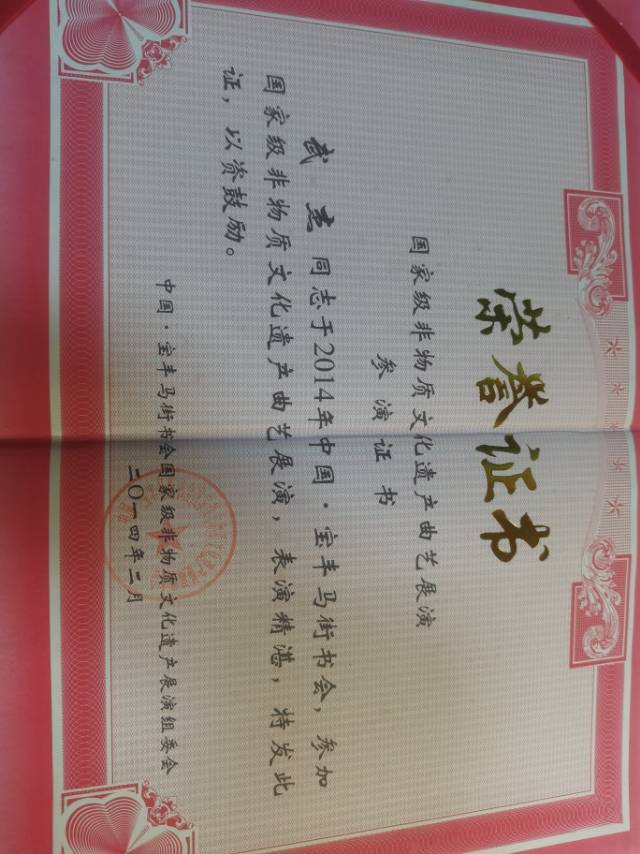 荣誉证书
国家级非物质文化遗产曲艺展演
参演证书
武 杰 同志于2014年中国·宝丰马街书会，参加
国家级非物质文化遗产曲艺展演，表演精湛，特发此
证，以资鼓励。
中国·宝丰马街书会国家级非物质文化遗产展演组委会
二〇一四年二月